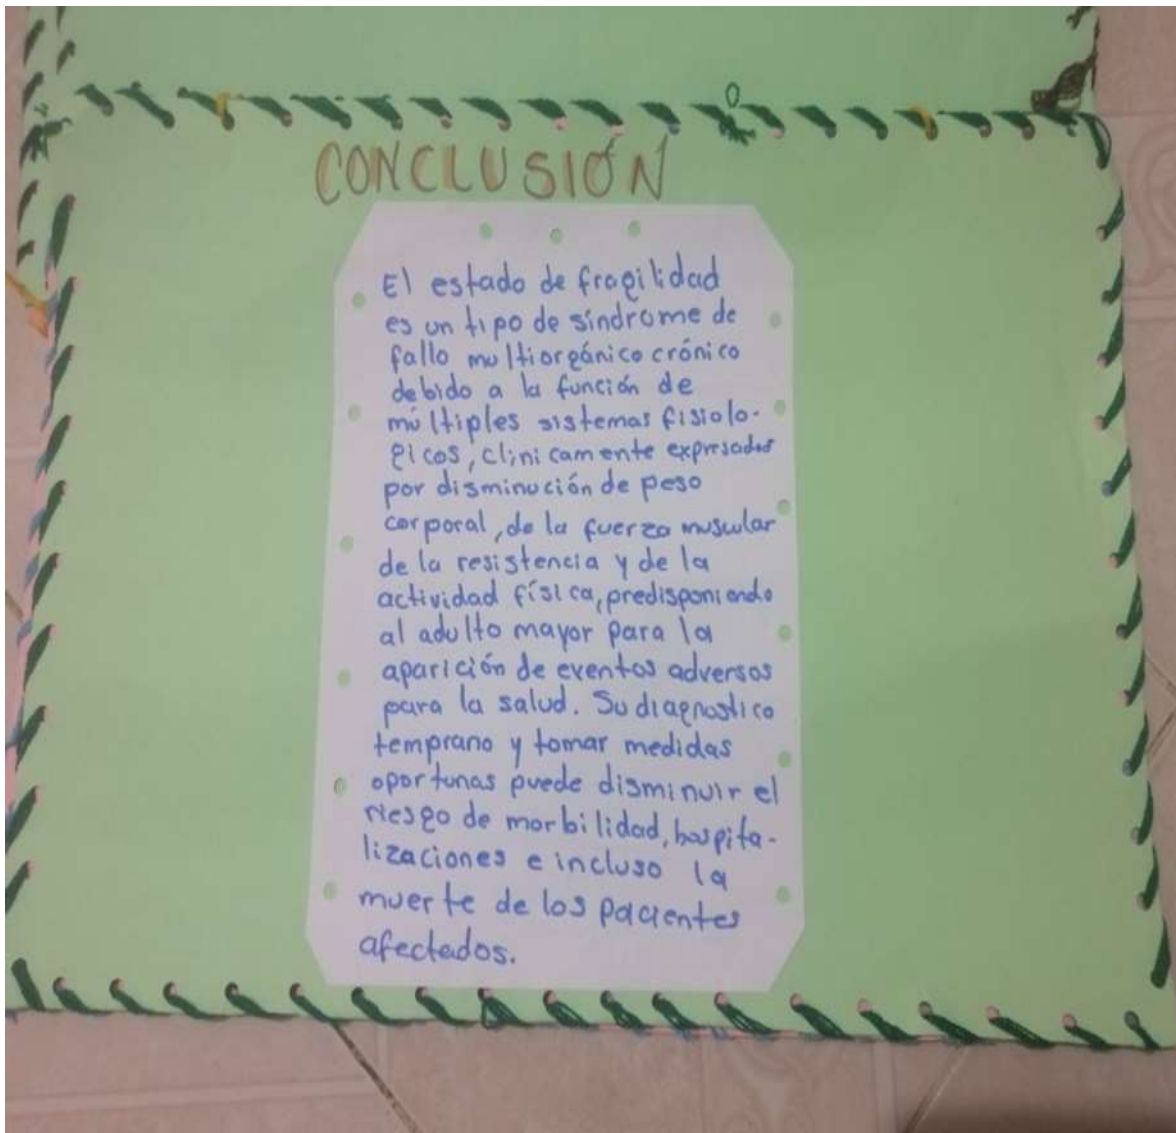 CONCLUSIÓN
El estado de fragilidad
es un tipo de síndrome de
fallo multiorgánico crónico
debido a la función de
múltiples sistemas fisiolo-
gicos, clinicamente expresados
por disminución de peso
corporal, de la fuerza muscular
de la resistencia y de la
actividad física, predisponiendo
al adulto mayor para la
aparición de eventos adversos
para la salud. Su diagnostico
temprano y tomar medidas
oportunas puede disminuir el
riesgo de morbilidad, hospita-
lizaciones e incluso la
muerte de los pacientes
afectados.